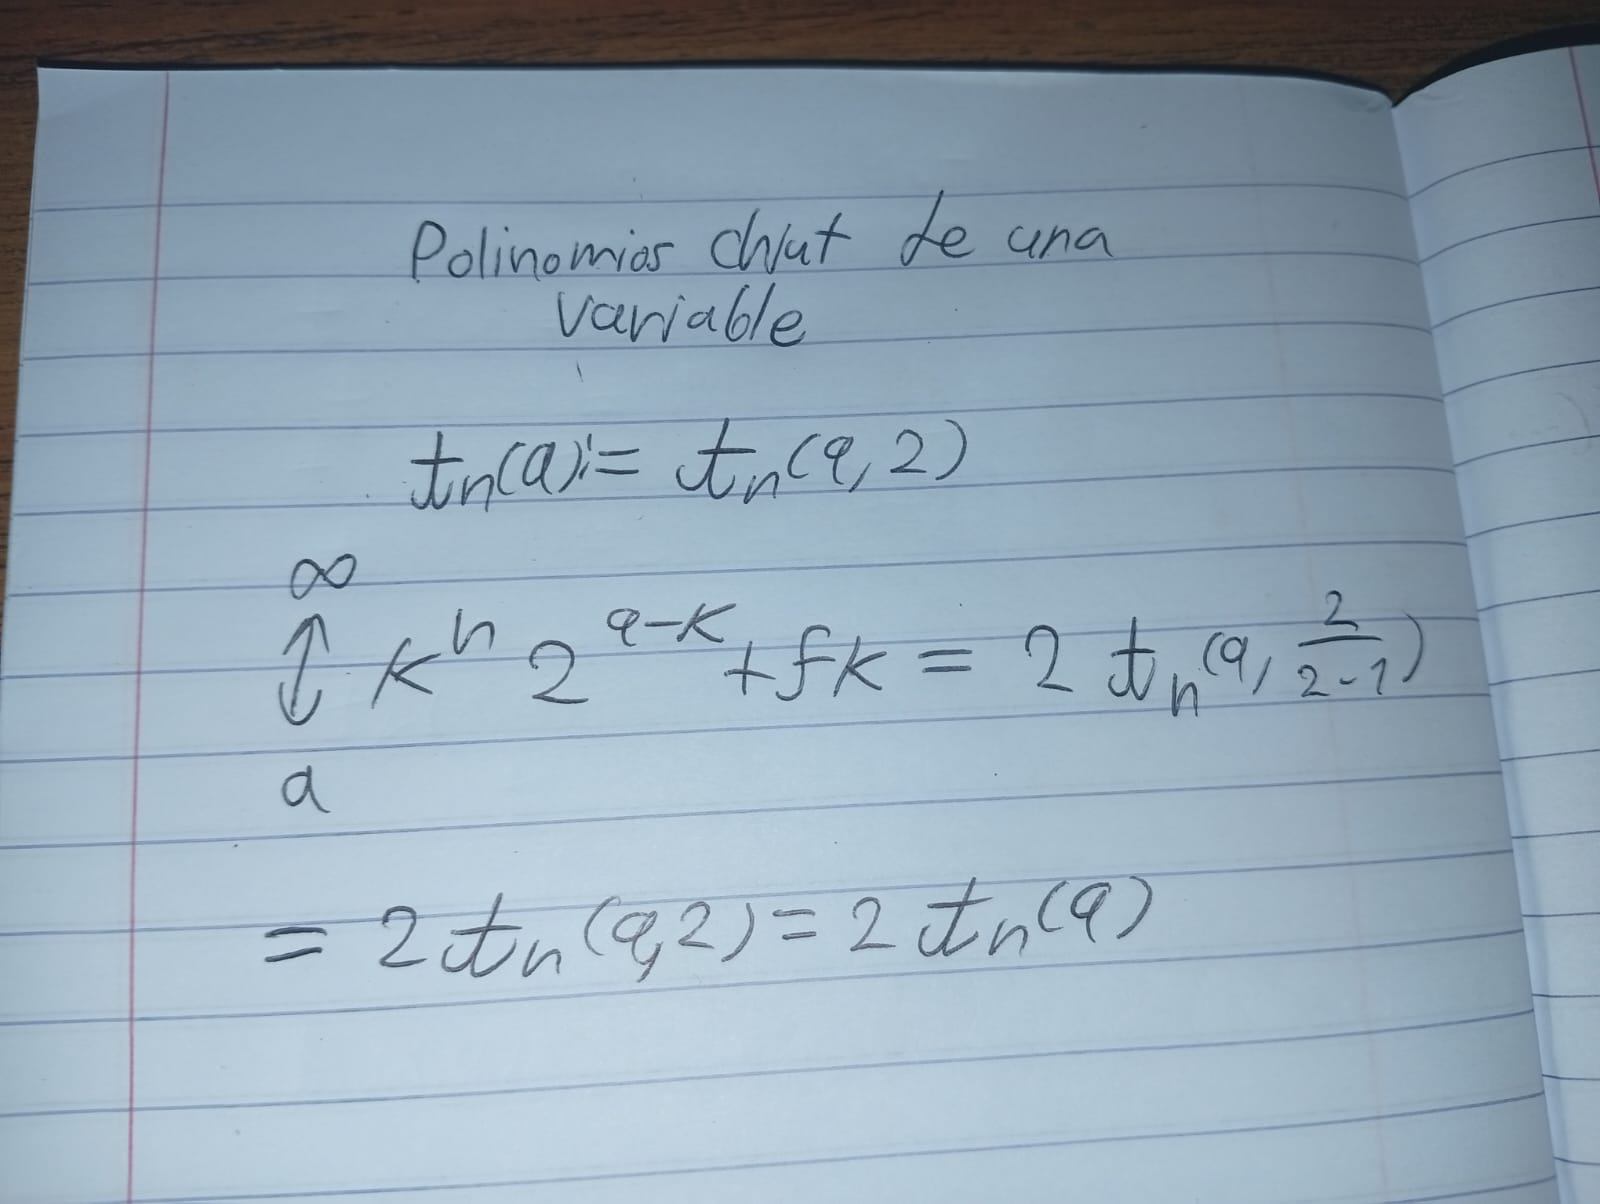 Polinomios chut de una
variable
tn(a):= tn(a,2)
∞
↕ k^n 2^(a-k) + fk = 2 tn(a, 2/(2-1))
a
= 2tn(a,2) = 2 tn(a)